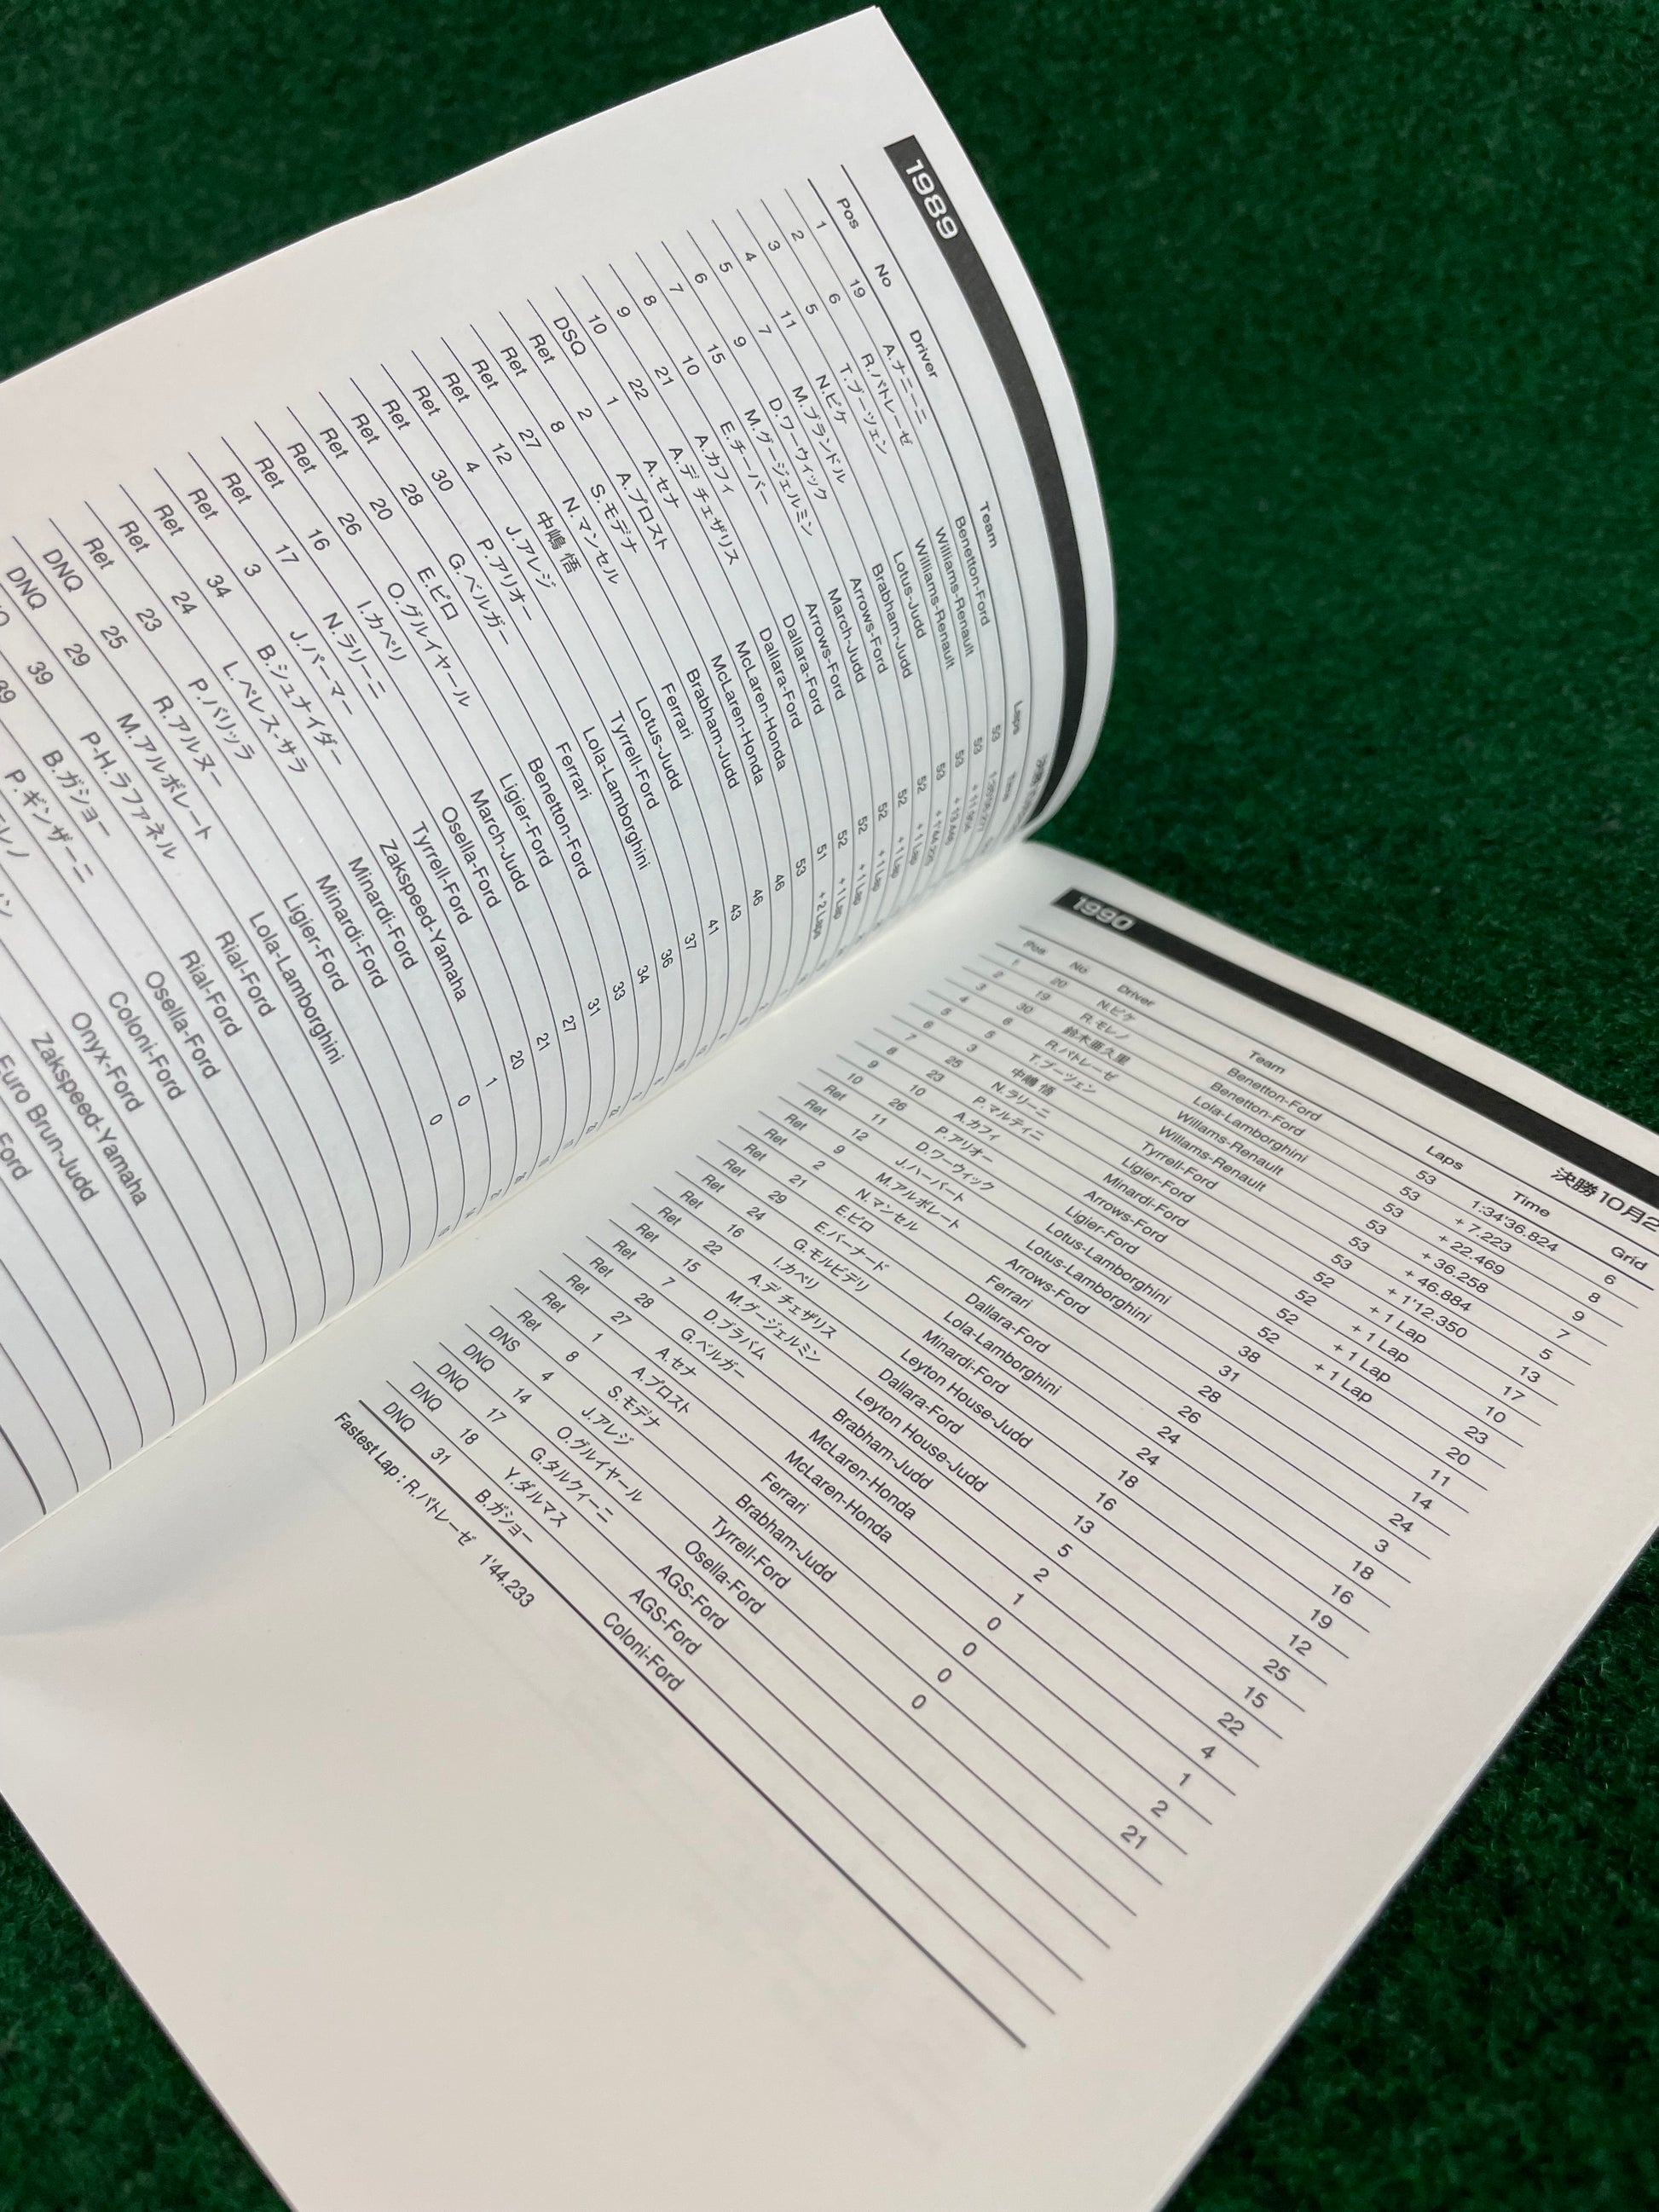 1989
Pos No Driver Team Laps Time
1 19 A.ナニーニ Benetton-Ford 53
2 6 R.パトレーゼ Williams-Renault 53
3 5 T.ブーツェン Williams-Renault 53
4 11 N.ピケ Lotus-Judd 53
5 7 M.ブランドル Brabham-Judd 52 + 1 Lap
6 9 D.ワーウィック Arrows-Ford 52 + 1 Lap
7 15 M.グージェルミン March-Judd 52 + 1 Lap
8 10 E.チーバー Arrows-Ford 52 + 1 Lap
9 21 A.カフィ Dallara-Ford 52 + 1 Lap
10 22 A.デ チェザリス Dallara-Ford 51 + 2 Laps
DSQ 1 A.セナ McLaren-Honda 53
Ret 2 A.プロスト McLaren-Honda 46
Ret 8 S.モデナ Brabham-Judd 46
Ret 27 N.マンセル Ferrari 43
Ret 12 中嶋 悟 Lotus-Judd 41
Ret 4 J.アレジ Tyrrell-Ford 37
Ret 30 P.アリオー Lola-Lamborghini 36
Ret 28 G.ベルガー Ferrari 34
Ret 20 E.ピロ Benetton-Ford 33
Ret 26 O.グルイヤール Ligier-Ford 31
Ret 16 I.カペリ March-Judd 27
Ret 17 N.ラリーニ Osella-Ford 21
Ret 3 J.パーマー Tyrrell-Ford 20
Ret 34 B.シュナイダー Zakspeed-Yamaha 1
Ret 24 L.ペレス・サラ Minardi-Ford 0
Ret 23 P.バリッラ Minardi-Ford 0
DNQ 25 R.アルヌー Ligier-Ford
DNQ 29 M.アルボレート Lola-Lamborghini
39 P-H.ラファネル Rial-Ford
39 B.ガショー Rial-Ford
P.ギンザーニ Osella-Ford
Coloni-Ford
Onyx-Ford
Zakspeed-Yamaha
Euro Brun-Judd
Ford
1990
決勝 10月2
Pos No Driver Team Laps Time Grid
1 20 N.ピケ Benetton-Ford 53 1:34'36.824 6
2 19 R.モレノ Benetton-Ford 53 + 7.223 8
3 30 鈴木亜久里 Lola-Lamborghini 53 + 22.469 9
4 6 R.パトレーゼ Willams-Renault 53 + 36.258 7
5 5 T.ブーツェン Willams-Renault 53 + 46.884 5
6 3 中嶋 悟 Tyrrell-Ford 53 + 1'12.350 13
7 25 N.ラリーニ Ligier-Ford 52 + 1 Lap 17
8 23 P.マルティニ Minardi-Ford 52 + 1 Lap 10
9 10 A.カフィ Arrows-Ford 52 + 1 Lap 23
10 26 P.アリオー Ligier-Ford 52 + 1 Lap 20
Ret 11 D.ワーウィック Lotus-Lamborghini 38 11
Ret 12 J.ハーバート Lotus-Lamborghini 31 14
Ret 9 M.アルボレート Arrows-Ford 28 24
Ret 2 N.マンセル Ferrari 26 3
Ret 21 E.ピロ Dallara-Ford 24 18
Ret 29 E.バーナード Lola-Lamborghini 24 16
Ret 24 G.モルビデリ Minardi-Ford 18 19
Ret 16 I.カペリ Leyton House-Judd 16 12
Ret 22 A.デ チェザリス Dallara-Ford 13 25
Ret 15 M.グージェルミン Leyton House-Judd 5 15
Ret 7 D.ブラバム Brabham-Judd 2 22
Ret 28 G.ベルガー McLaren-Honda 1 4
Ret 27 A.セナ McLaren-Honda 0 1
Ret 1 A.プロスト Ferrari 0 2
Ret 8 S.モデナ Brabham-Judd 0 21
DNS 4 J.アレジ Tyrrell-Ford 0
DNQ 14 O.グルイヤール Osella-Ford
DNQ 17 G.タルクィーニ AGS-Ford
DNQ 18 Y.ダルマス AGS-Ford
DNQ 31 B.ガショー Coloni-Ford
Fastest Lap : R.パトレーゼ 1'44.233